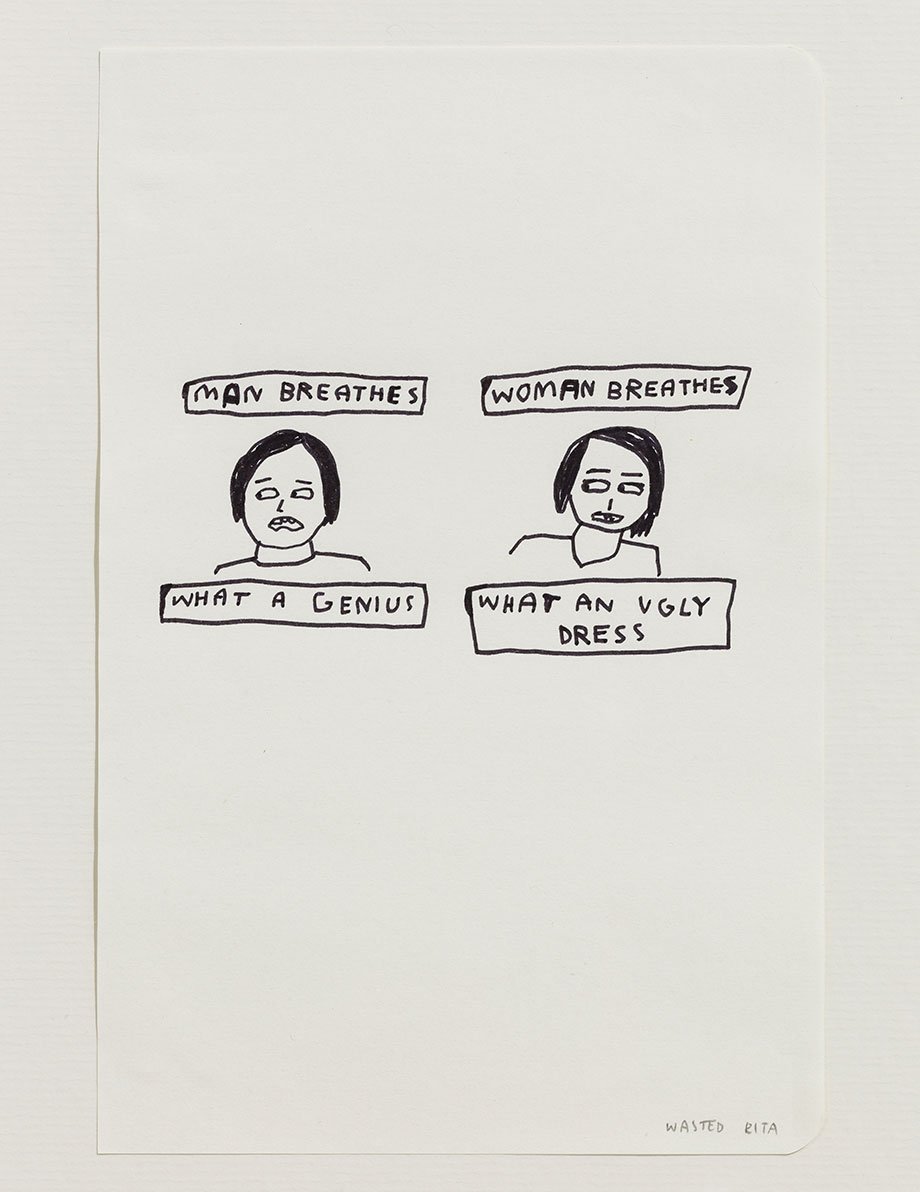 MAN BREATHES
WOMAN BREATHES
WHAT A GENIUS
WHAT AN UGLY
DRESS
WASTED RITA